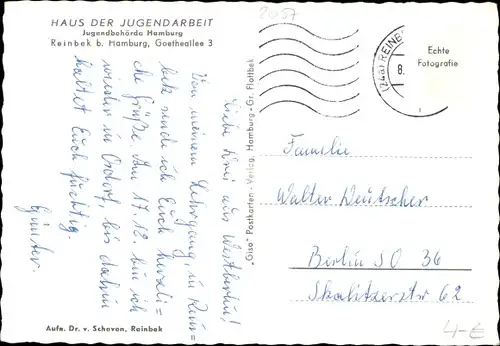 HAUS DER JUGENDARBEIT
Jugendbehörde Hamburg
Reinbek b. Hamburg, Goetheallee 3
2057
(24a) REINBEK
8.
Echte
Fotografie
Liebe Drei aus Westberlin!
Von meinem Lehrgang, in Rein=
bek sende ich Euch herzli=
che Grüße. Am 17.12. bin ich
wieder in Osdorf, bis dahin
haltet Euch tüchtig.
Günter.
"Giso" Postkarten-Verlag, Hamburg-Gr. Flottbek
Familie
Walter Deutscher
Berlin SO 36
Skalitzerstr 62
4-€
Aufn. Dr. v. Scheven, Reinbek